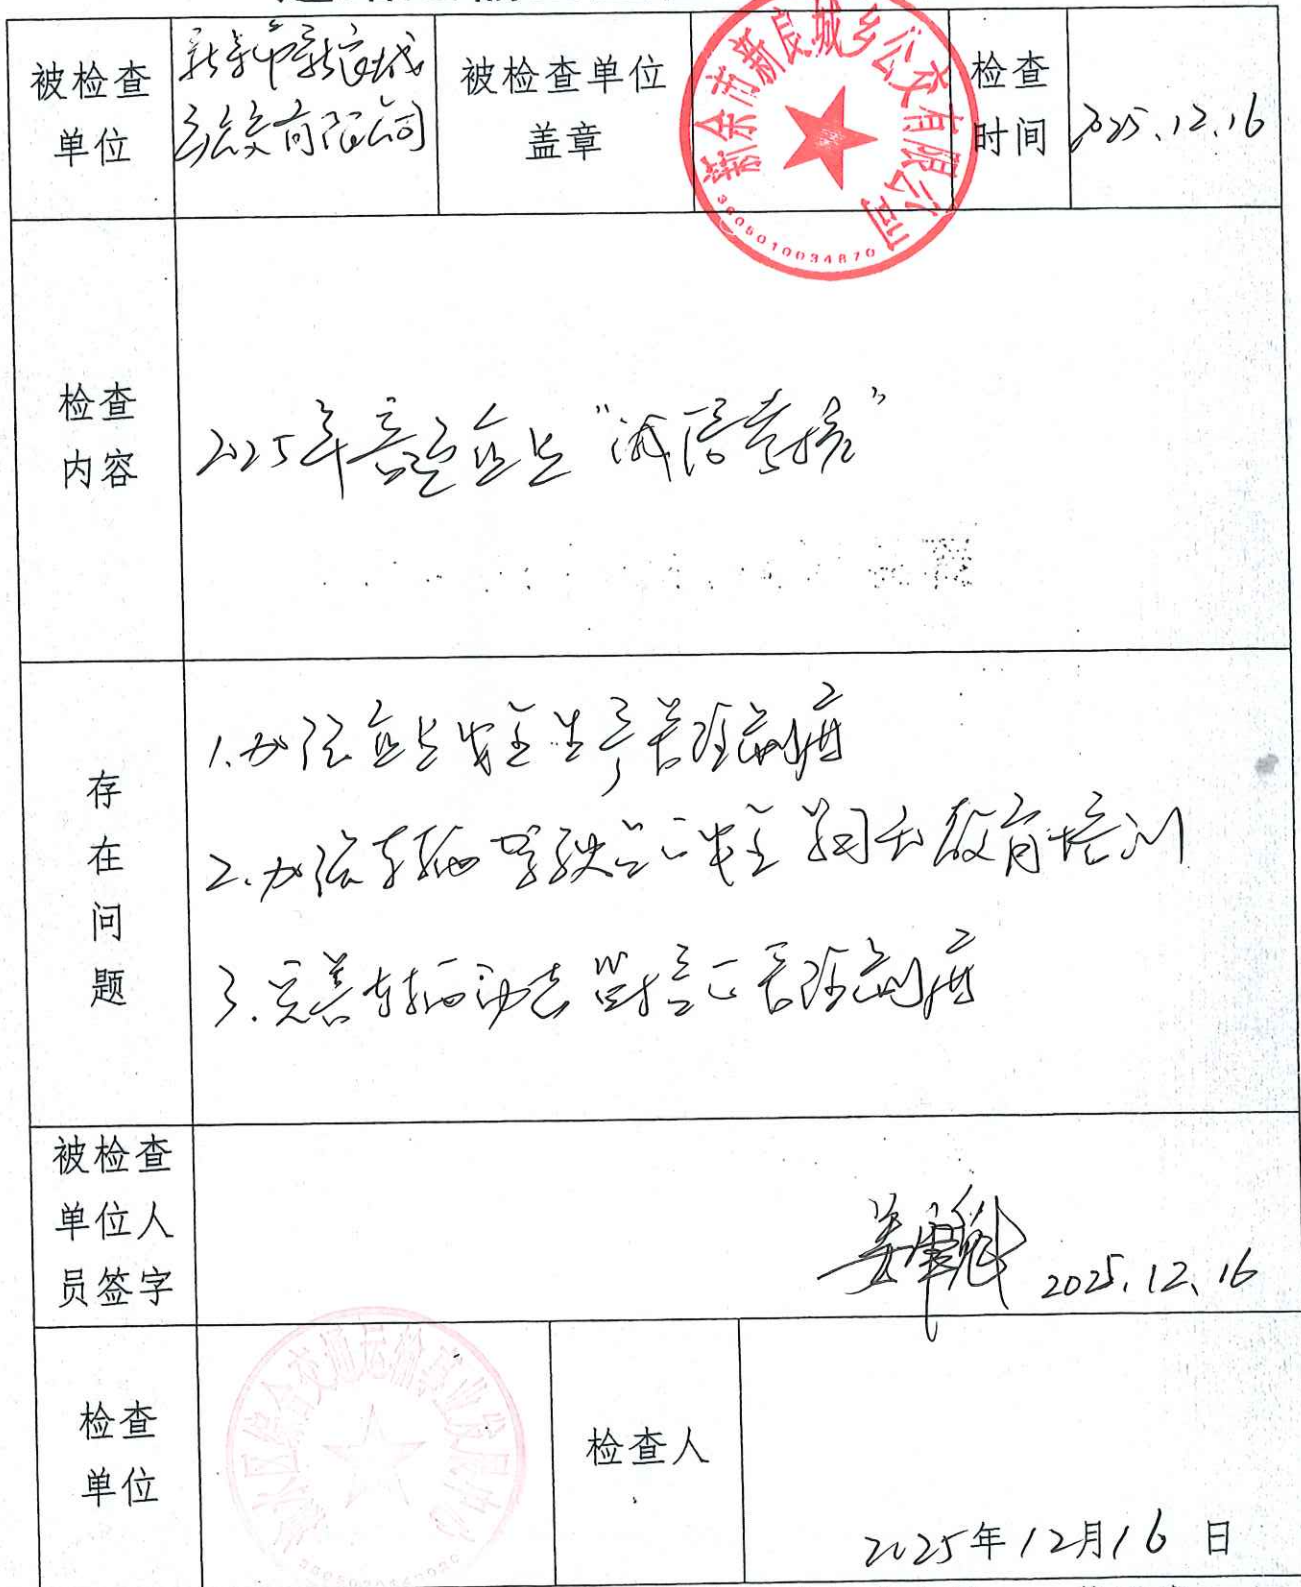 被检查
单位
新余市新良城
乡公交有限公司
被检查单位
盖章
新余市新良城乡公交有限公司
3605010034870
检查
时间
2025.12.16
检查
内容
2025年度企业“诚信考核”
存
在
问
题
1.加强企业安全生产管理制度
2.加强车辆驾驶员安全教育培训
3.完善车辆动态监控管理制度
被检查
单位人
员签字
2025.12.16
检查
单位
渝水区综合交通运输事业发展中心
检查人
2025年12月16日